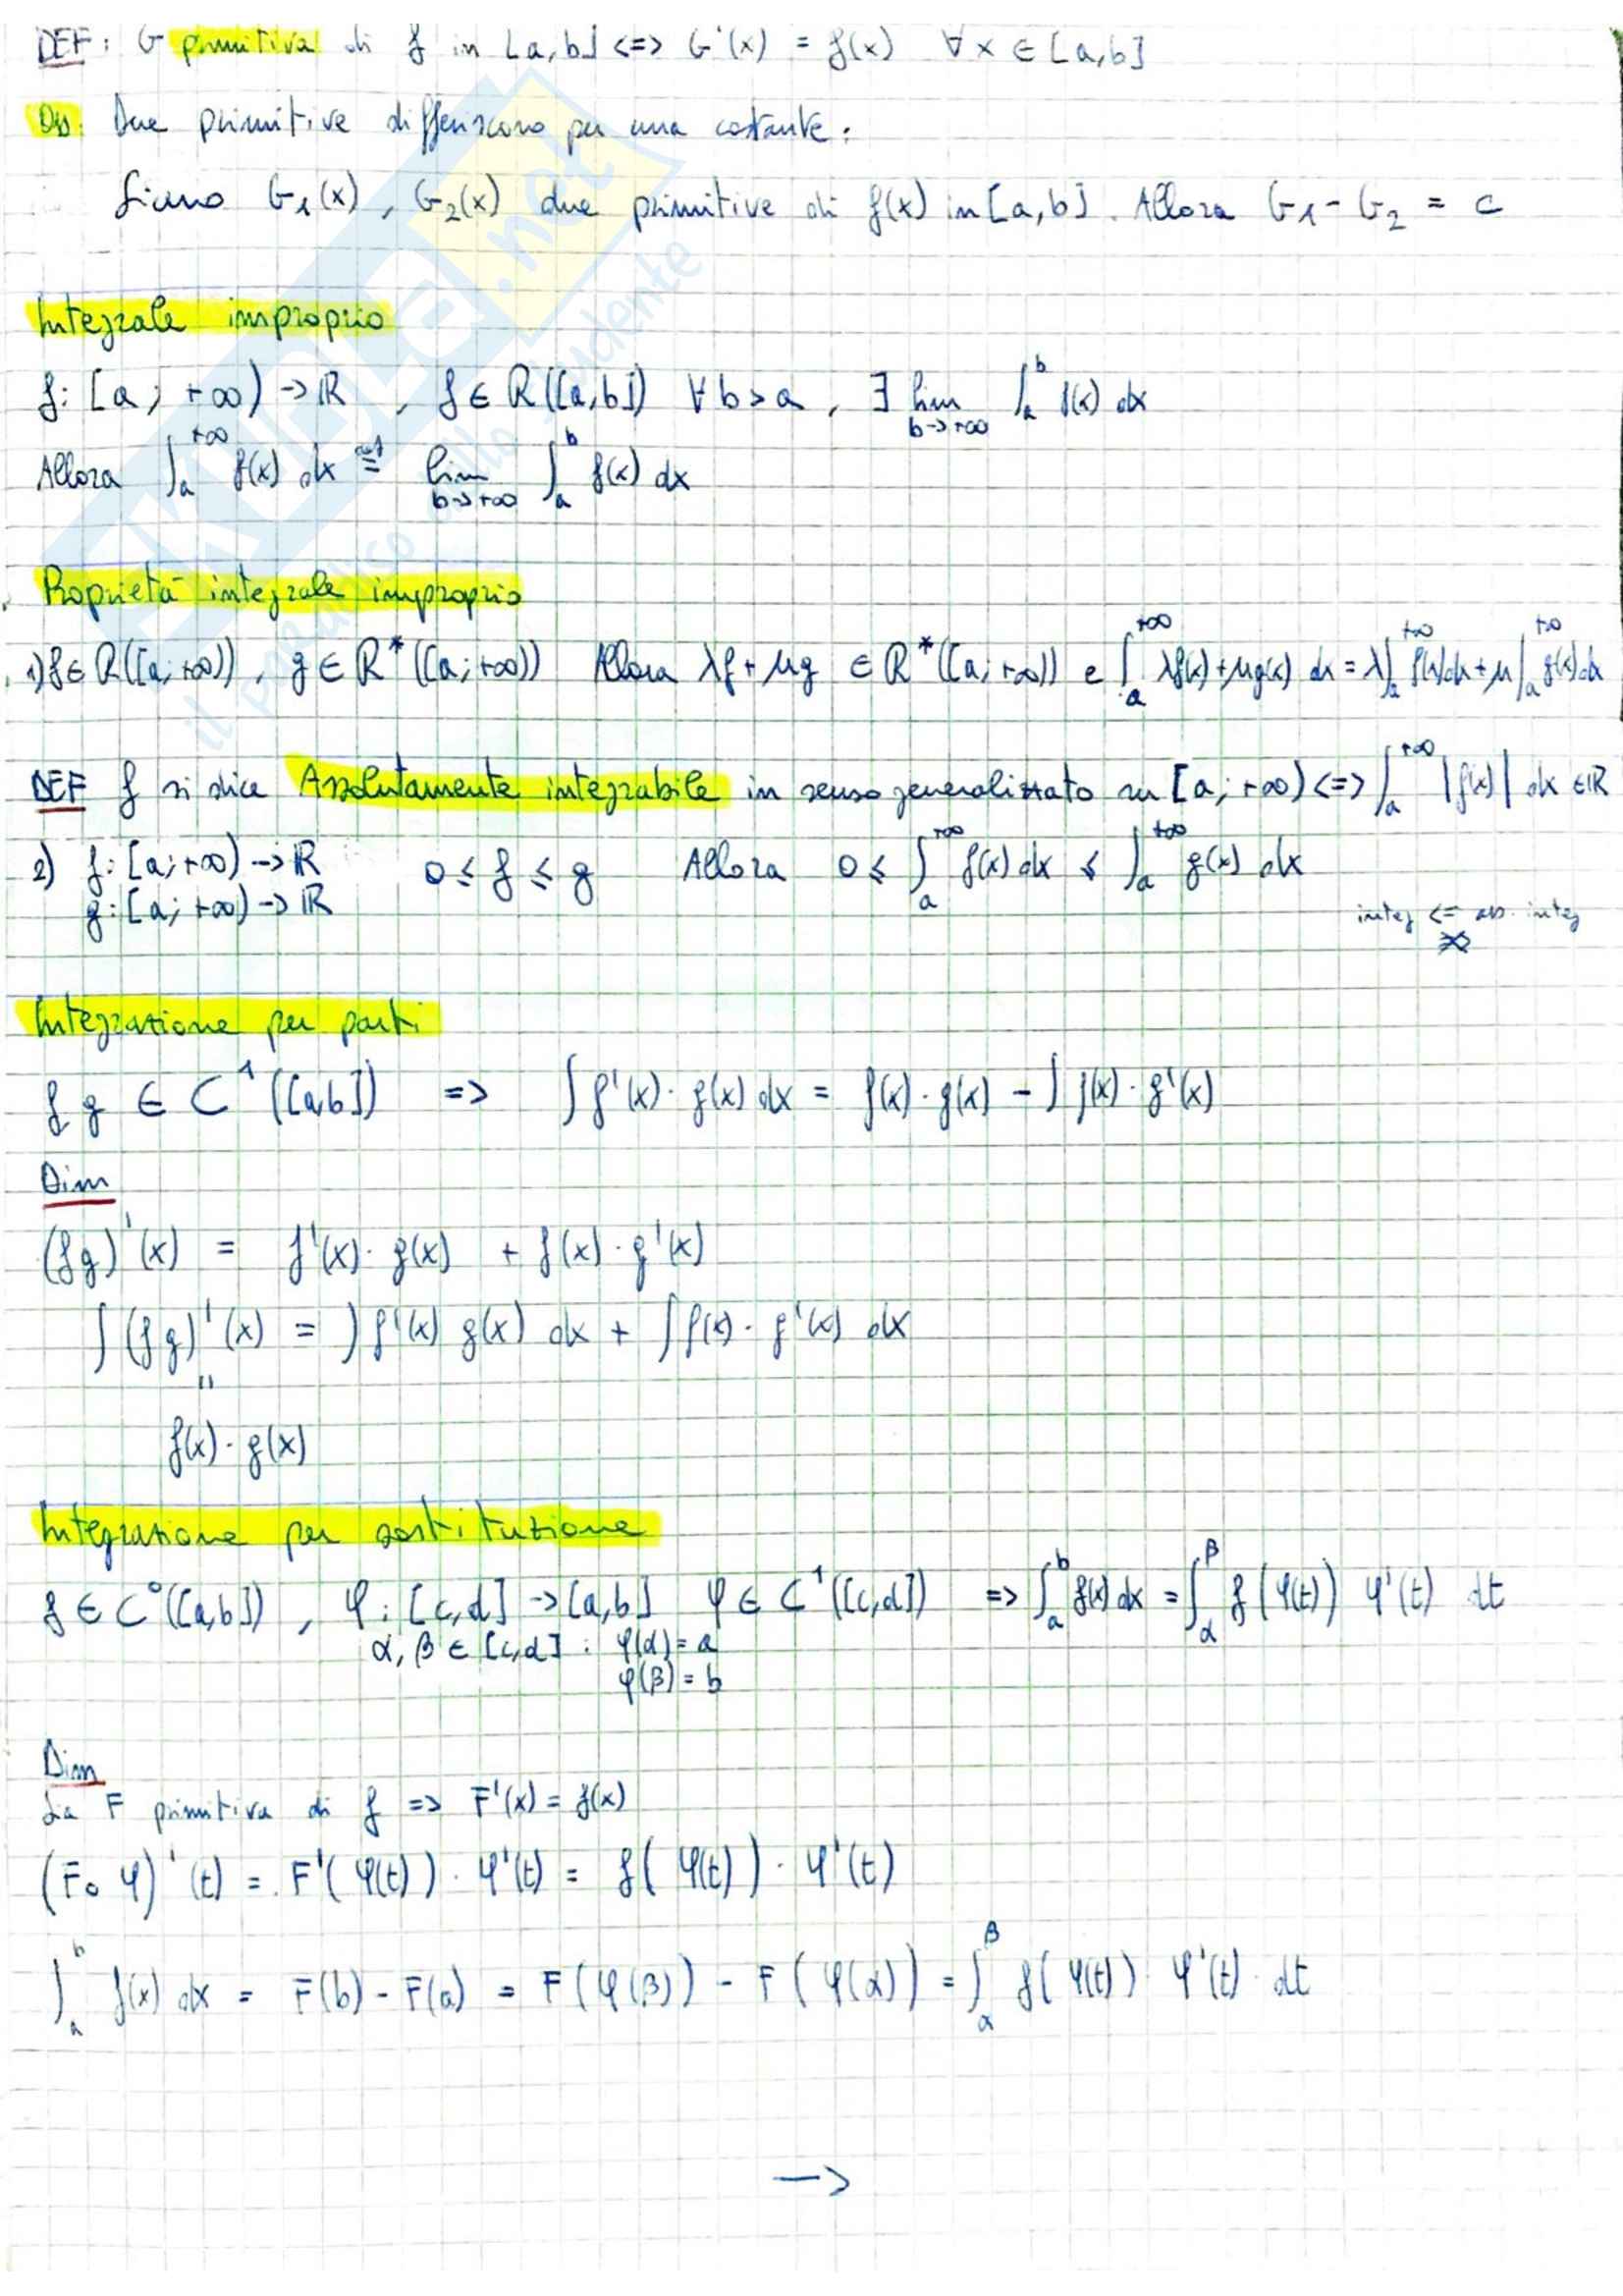 DEF: G primitiva di f in [a,b] <=> G'(x) = f(x) ∀x ∈ [a,b]
Oss: Due primitive differiscono per una costante:
Siano G₁(x), G₂(x) due primitive di f(x) in [a,b]. Allora G₁ - G₂ = c
Integrale improprio
f: [a; +∞) -> ℝ, f ∈ R([a,b]) ∀b>a, ∃ lim_{b->+∞} ∫_a^b f(x) dx
Allora ∫_a^{+∞} f(x) dx =^{def} lim_{b->+∞} ∫_a^b f(x) dx
Proprietà integrale improprio
1) f ∈ R([a;+∞)), g ∈ R*([a;+∞)) Allora λf + μg ∈ R*([a;+∞)) e ∫_a^{+∞} λf(x)+μg(x) dx = λ∫_a^{+∞} f(x)dx + μ∫_a^{+∞} g(x)dx
DEF f si dice Assolutamente integrabile in senso generalizzato su [a;+∞) <=> ∫_a^{+∞} |f(x)| dx ∈ ℝ
2) f: [a;+∞) -> ℝ 0 ≤ f ≤ g Allora 0 ≤ ∫_a^{+∞} f(x) dx ≤ ∫_a^{+∞} g(x) dx
g: [a; +∞) -> ℝ
integ <= ass. integ
≠>
Integrazione per parti
f g ∈ C¹([a,b]) => ∫ f'(x)·g(x) dx = f(x)·g(x) - ∫ f(x)·g'(x)
Dim
(fg)'(x) = f'(x)·g(x) + f(x)·g'(x)
∫ (fg)'(x) = ∫ f'(x) g(x) dx + ∫ f(x)·g'(x) dx
"
f(x)·g(x)
Integrazione per sostituzione
f ∈ C⁰([a,b]), φ: [c,d] -> [a,b] φ ∈ C¹([c,d]) => ∫_a^b f(x) dx = ∫_α^β f(φ(t)) φ'(t) dt
α, β ∈ [c,d] : φ(α) = a
φ(β) = b
Dim
Sia F primitiva di f => F'(x) = f(x)
(F∘φ)'(t) = F'(φ(t))·φ'(t) = f(φ(t))·φ'(t)
∫_a^b f(x) dx = F(b) - F(a) = F(φ(β)) - F(φ(α)) = ∫_α^β f(φ(t)) φ'(t)·dt
->
.net
il paradiso dello studente